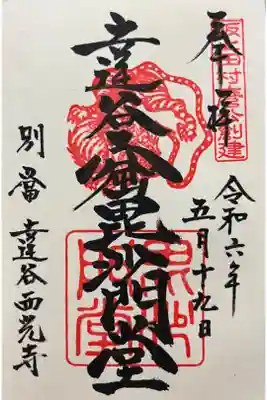 坂上田村麿公創建
奉拝
令和六年
五月十九日
達谷窟毘沙門堂
別當 達谷西光寺